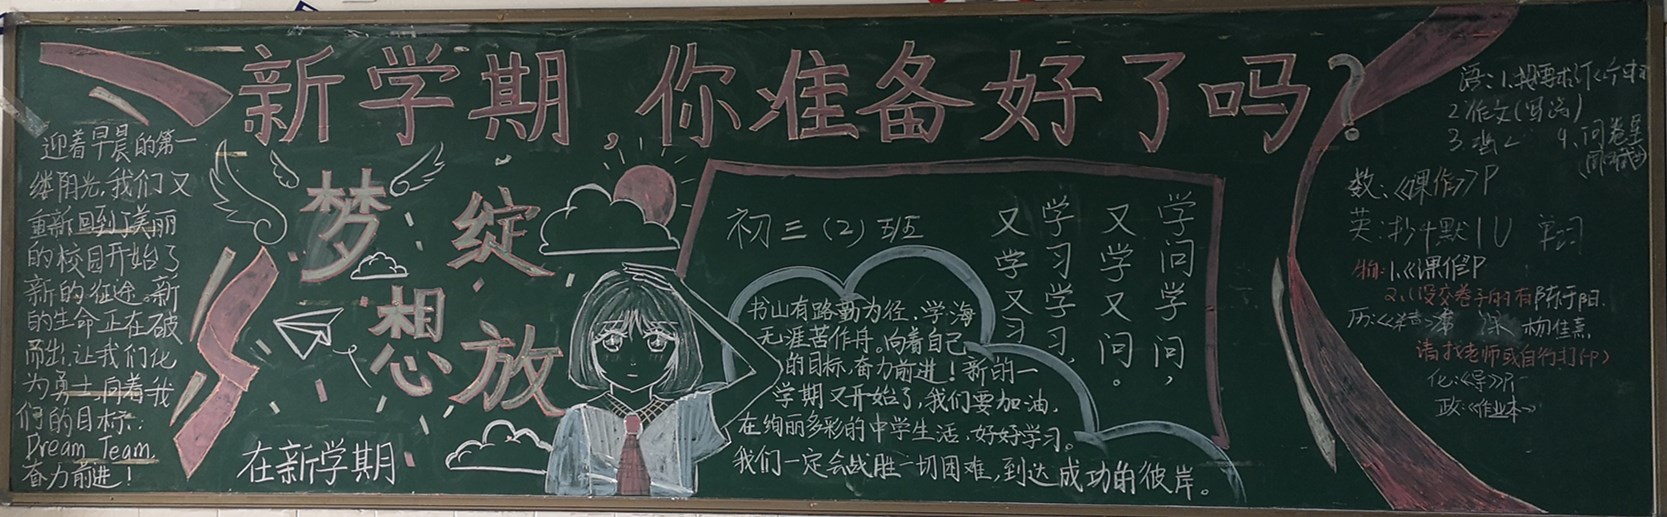 新学期,你准备好了吗?
迎着早晨的第一
缕阳光,我们又
重新回到了美丽
的校园开始了
新的征途。新
的生命正在破
而出,让我们化
为勇士,向着我
们的目标:
Dream Team,
奋力前进!
梦想
绽放
在新学期
初三(2)班
学问学问,
又学又问。
学习学习,
又学又习
书山有路勤为径,学海
无涯苦作舟。向着自己
的目标,奋力前进!新的一
学期又开始了,我们要加油,
在绚丽多彩的中学生活,好好学习。
我们一定会战胜一切困难,到达成功的彼岸。
语:1.按要求
2作文(写法)
3 4.问卷星
数:《课作》P
英:抄4默1U 单词
物:1.《课作》P
2.(没交卷子的有陈于阳.
历:
请找老师或自行打印)
化:《导》P
政:《作业本》